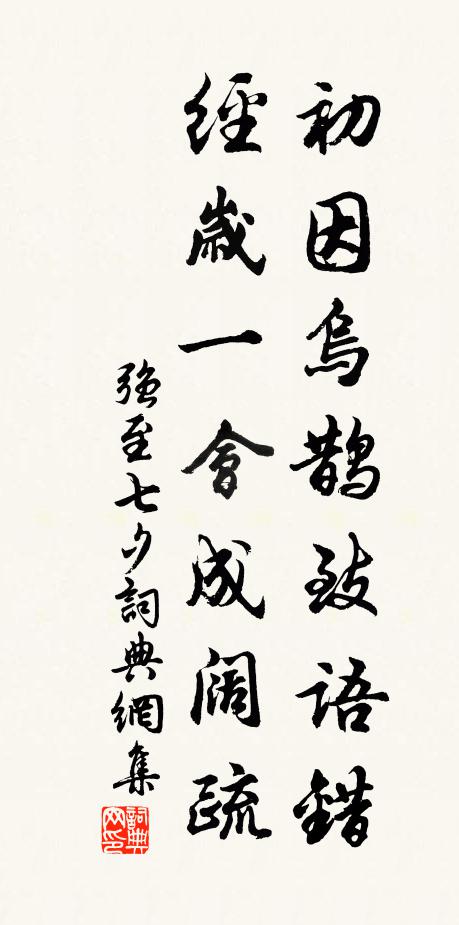 初因烏鵲致語錯
經歲一會成闊疏
强至七夕詞典網集
詞典网印